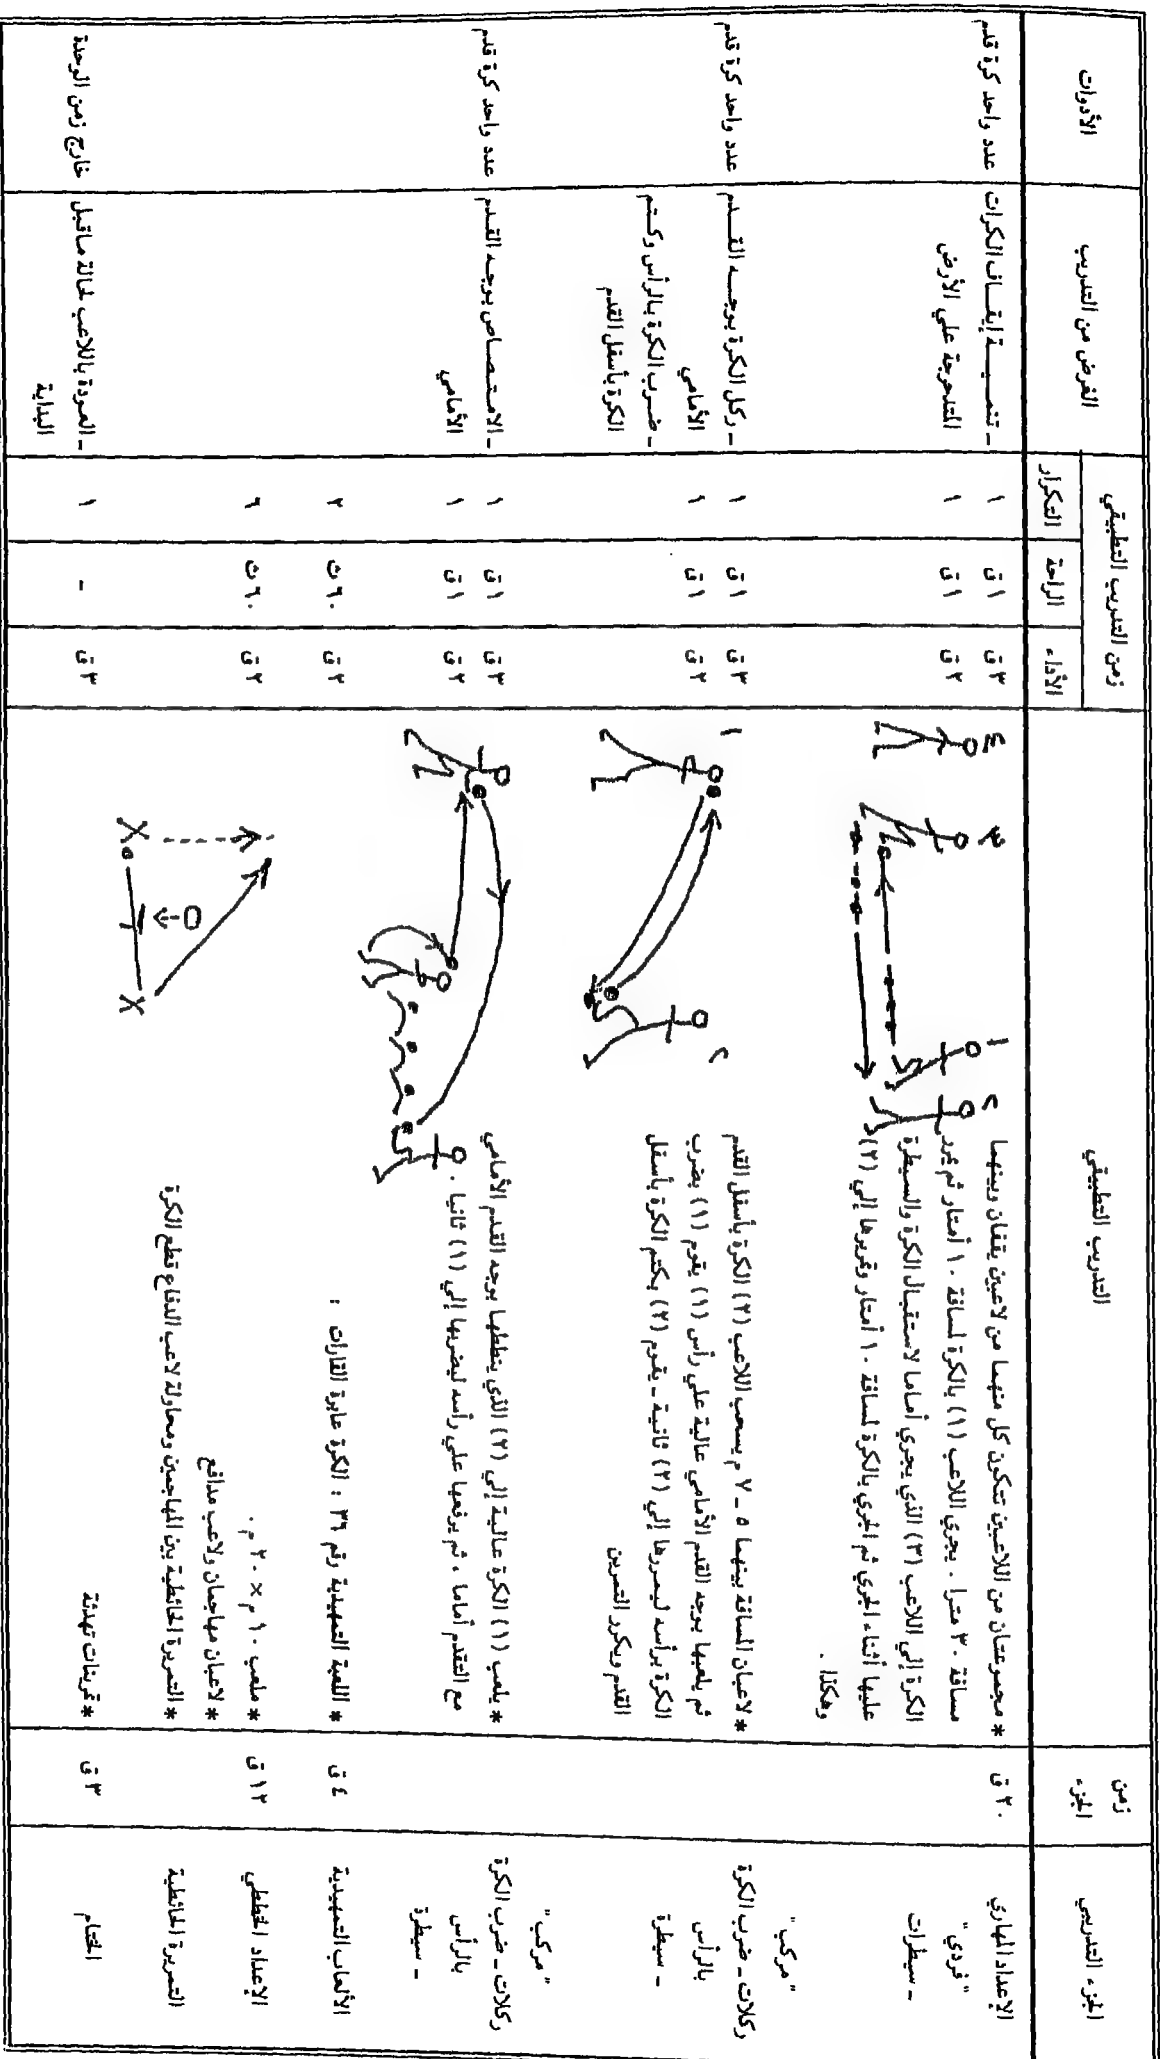 الجزء التدريبي
زمن
الجزء
التدريب التطبيقي
زمن التدريب التطبيقي
الأداء
الراحة
التكرار
الغرض من التدريب
الأدوات
الإعداد المهاري
"فردي"
ـ سيطرات
٢٠ ق
* مجموعتان من اللاعبين تتكون كل منهما من لاعبين يقفان وبينهما
مسافة ٣٠ مترا . يجري اللاعب (١) بالكرة لمسافة ١٠ أمتار ثم يمرر
الكرة إلي اللاعب (٣) الذي يجري أماما لاستقبال الكرة والسيطرة
عليها أثناء الجري ثم الجري بالكرة لمسافة ١٠ أمتار وتمريرها إلي (٢)
وهكذا .
٤
٣
١
٢
٣ ق
٢ ق
١ ق
١ ق
١
١
ـ تنمـيـــة إيقــاف الكرات
المتدحرجة علي الأرض
عدد واحد كرة قدم
"مركب"
ركلات ـ ضرب الكرة
بالرأس
ـ سيطرة
* لاعبان المسافة بينهما ٥ ـ ٧ م يسحب اللاعب (٢) الكرة بأسفل القدم
ثم يلعبها بوجه القدم الأمامي عالية علي رأس (١) يقوم (١) بضرب
الكرة برأسه ليمررها إلي (٢) ثانية ـ يقوم (٢) بكتم الكرة بأسفل
القدم ويكرر التمرين
١
٢
٣ ق
٢ ق
١ ق
١ ق
١
١
ـ ركل الكرة بوجــه القــدم
الأمامي
ـ ضرب الكرة بالرأس وكتم
الكرة بأسفل القدم
عدد واحد كرة قدم
"مركب"
ركلات ـ ضرب الكرة
بالرأس
ـ سيطرة
* يلعب (١) الكرة عالية إلي (٢) الذي ينططها بوجه القدم الأمامي
مع التقدم أماما ، ثم يرفعها علي رأسه ليضربها إلي (١) ثانيا .
٣ ق
٢ ق
١ ق
١ ق
١
١
ـ الامتـصـاص بوجـه القـدم
الأمامي
عدد واحد كرة قدم
الألعاب التمهيدية
٤ ق
* اللعبة التمهيدية رقم ٣٦ : الكرة عابرة القارات :
٢ ق
٦٠ ث
٢
الإعداد الخططي
التمريرة الحائطية
١٢ ق
* ملعب ١٠ م × ٢٠ م .
* لاعبان مهاجمان ولاعب مدافع
* التمريرة الحائطية بين المهاجمين ومحاولة لاعب الدفاع قطع الكرة
٢ ق
٦٠ ث
٦
الختام
٣ ق
* تمرينات تهدئة
٣ ق
-
١
ـ العـودة باللاعب لحالة ماقبل
البداية
خارج زمن الوحدة